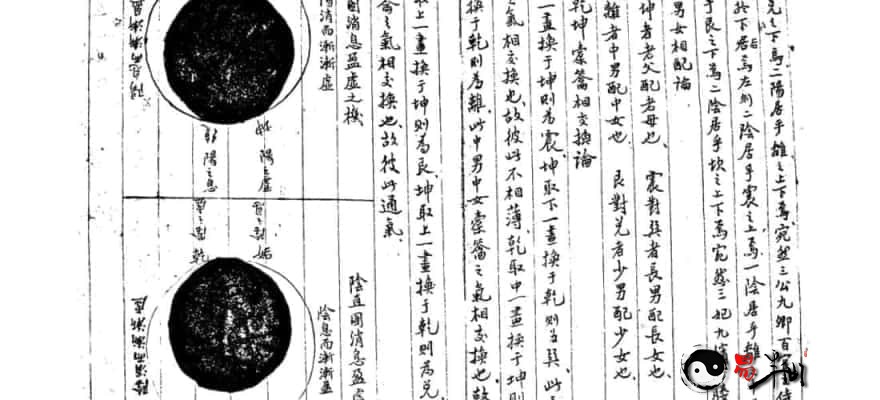 兌之下焉二陽居乎離之上下焉宛然三公九卿百
於下居焉左則二陰居乎震之上焉一陰居乎離
乎艮之下焉二陰居乎坎之上下焉宛然三妃九
男女相配論
坤者老父配老母也、震對巽者長男配長女也、
離者中男配中女也、艮對兌者少男配少女也、
乾坤橐籥相交換論
一畫換于坤則為震、坤取下一畫換于乾則為巽、此
之氣相交換也、故彼此不相薄、乾取中一畫換于坤則
換于乾則為離、此中男中女橐籥之氣相交換也、故
取上一畫換于坤則為艮、坤取上一畫換于乾則為兌、
籥之氣相交換也、故彼此通氣、
圖消息盈虛之機
陽消而漸漸虛
陽息而漸漸盈
陽之虛
陽之息
陰直圖消息盈虛
陰息而漸漸盈
陰消而漸漸虛